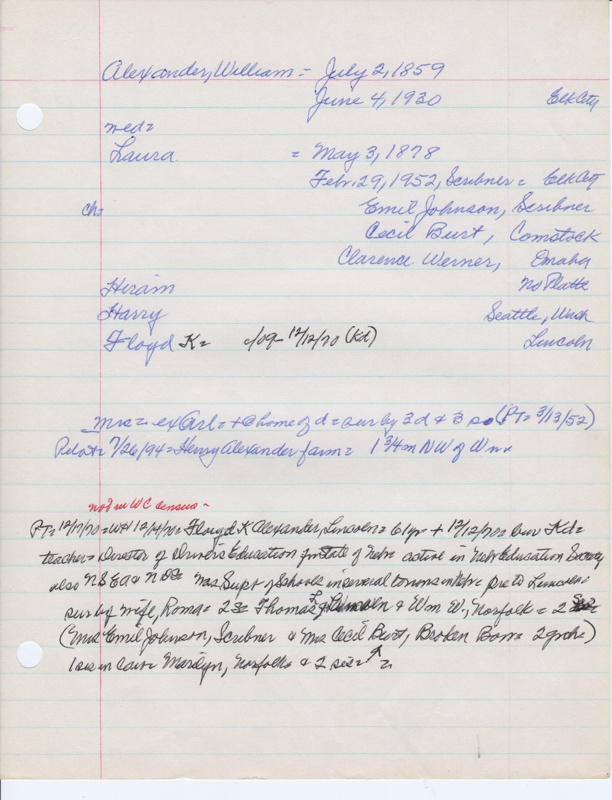 Alexander, William = July 2, 1859
June 4, 1930 Elk City
med =
Laura = May 3, 1878
Feb. 29, 1952, Scribner = Elk City
ch = Emil Johnson, Scribner
Cecil Burt, Comstock
Clarence Werner, Omaha
Hiram No Platte
Harry Seattle, Wash
Floyd K = 1909 - 12/12/70 (Kd) Lincoln
Mrs = ex Arl = + @ home of d = sur by 3 d & 3 so (PT = 3/13/52)
7/26/94 = Henry Alexander farm = 1 3/4 m NW of
not in WC census -
PT = 12/17/70 = 12/14/70 = Floyd K Alexander, Lincoln = 61 yr + 12/12/70 = bur Kd =
teacher = Director of Drivers Education for State of Nebr active in Nebr Education Society
also NSEA & Was Supt of Schools in several towns in Nebr pre to Lincoln =
sur by wife, Roma = 2 s = Thomas L, Lincoln & Wm W, Norfolk = 2 sis
(Mrs Emil Johnson, Scribner & Mrs Cecil Burt, Broken Bow = 2 grch =)
Marilyn, Norfolk & 2 sis =